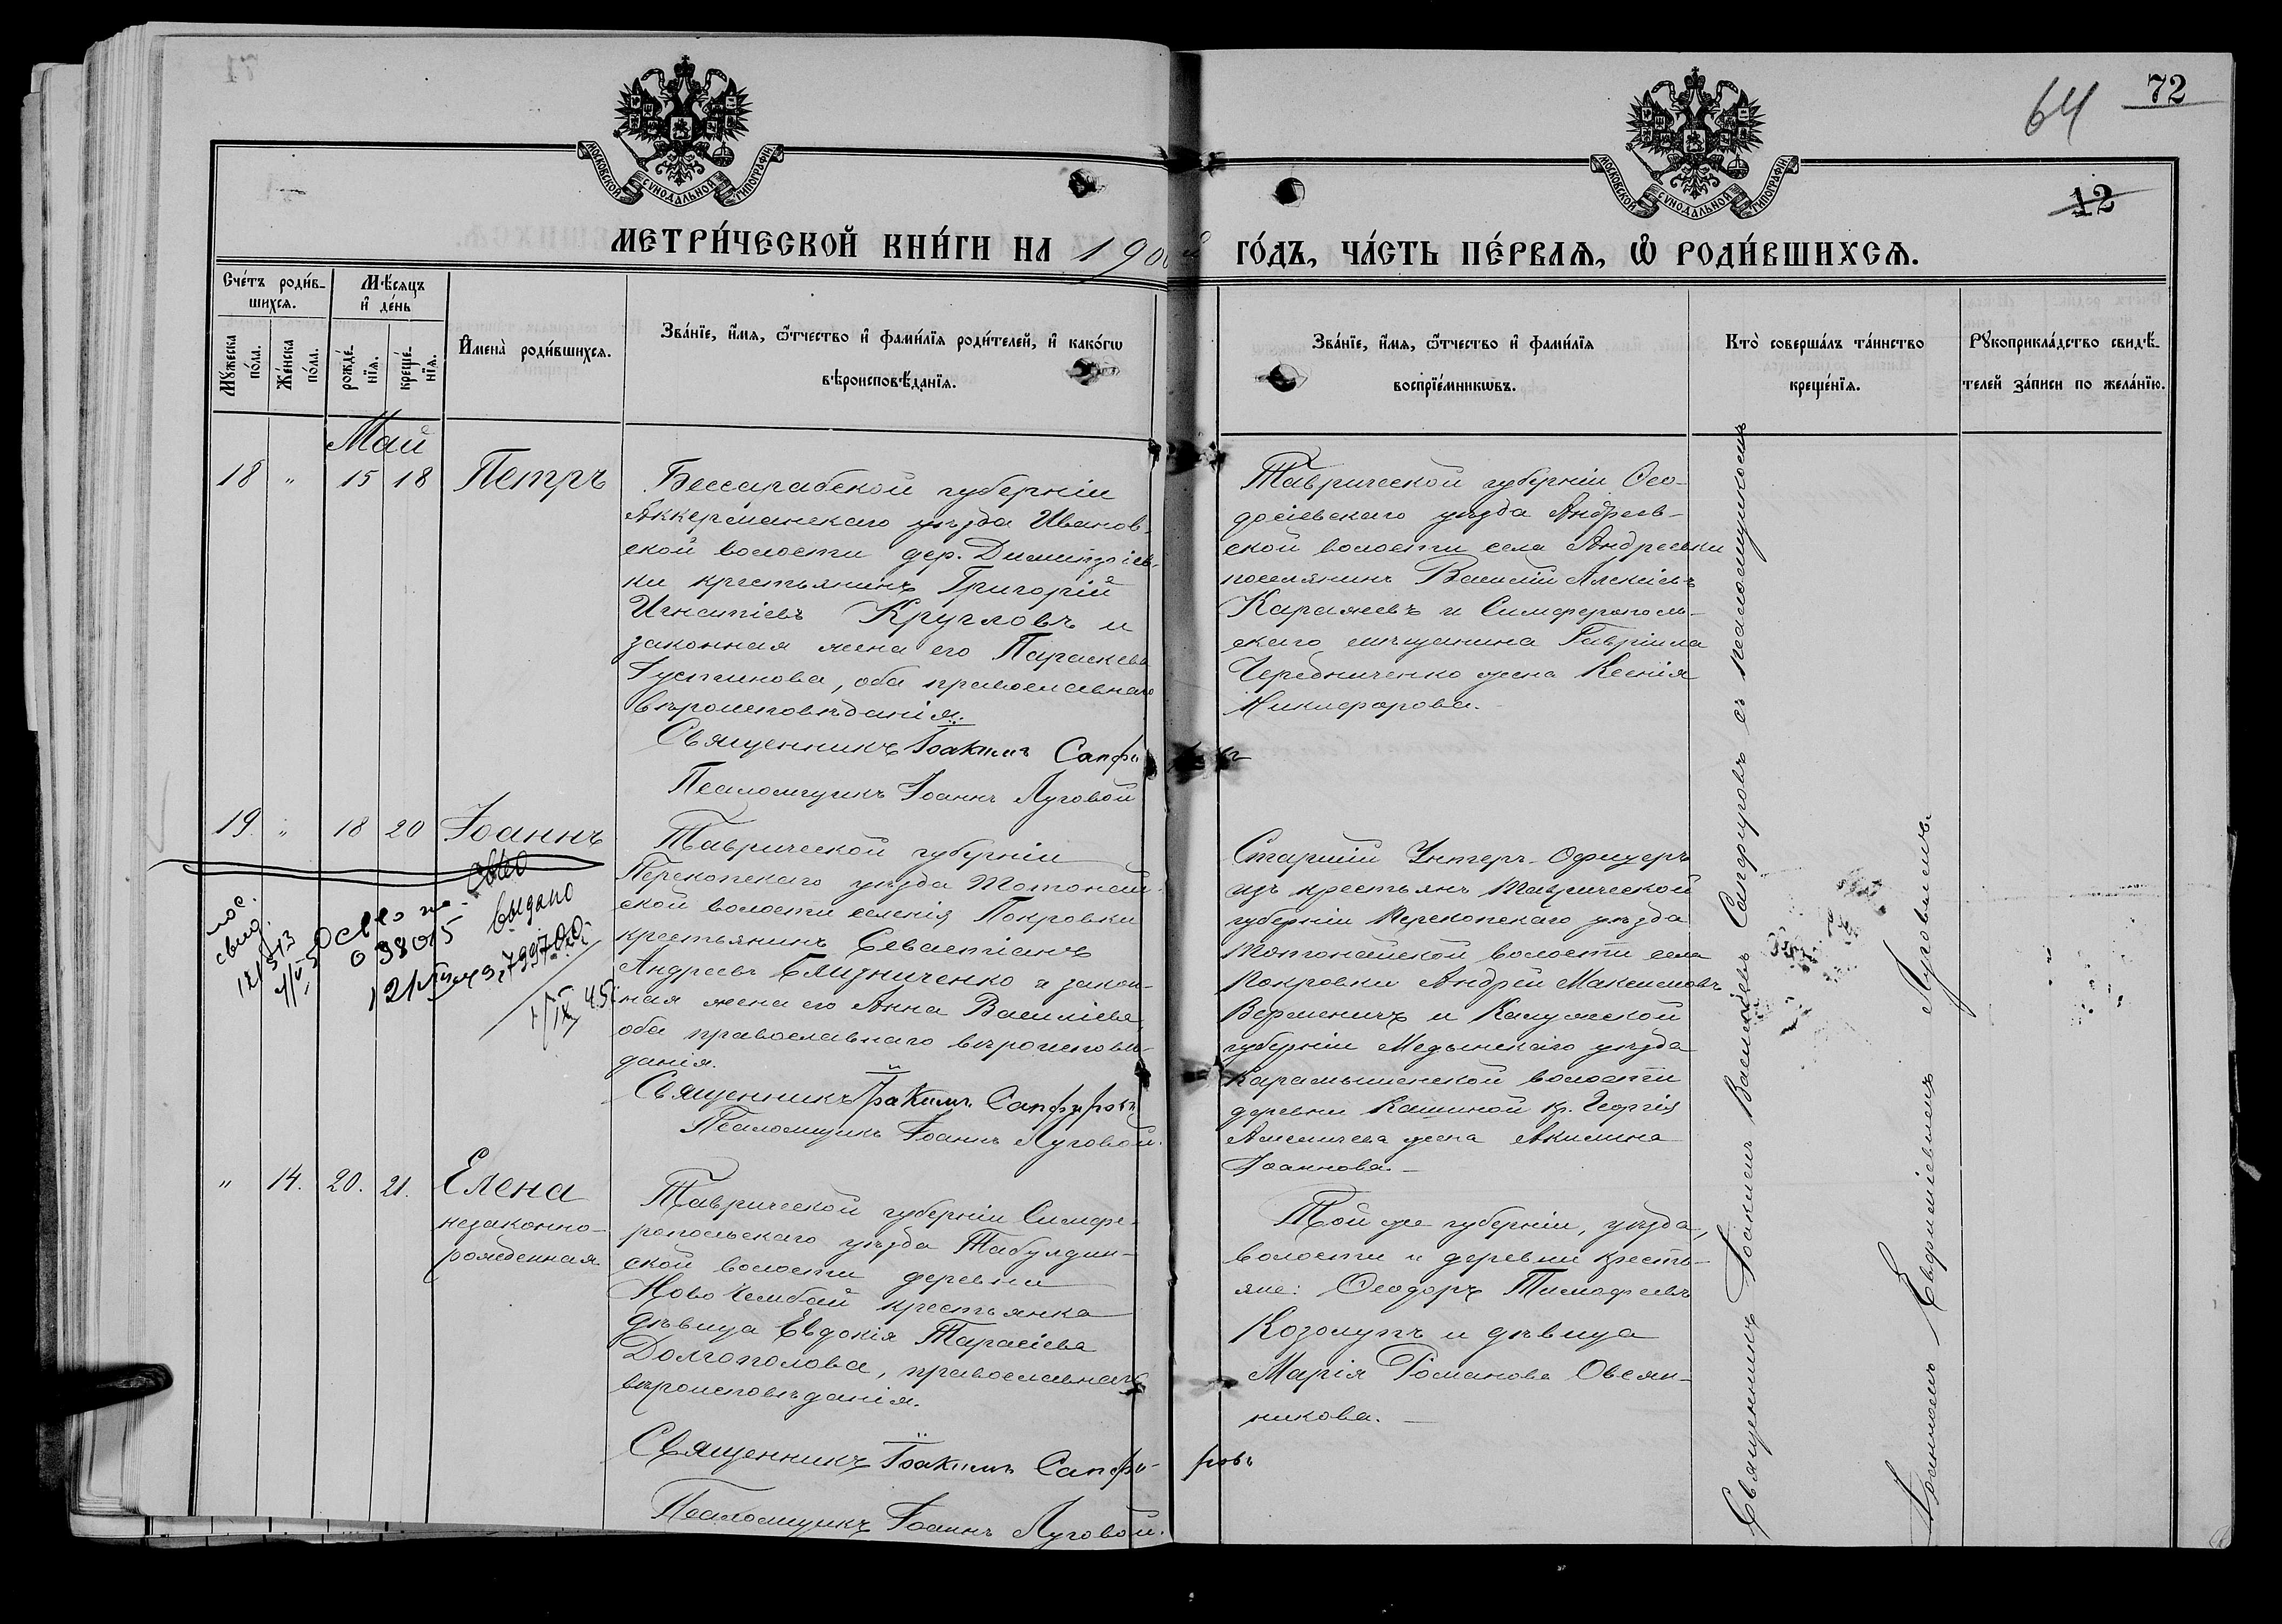 64
72
12
МОСКОВСКОЙ СѴНОДАЛЬНОЙ ТИПОГРАФІИ.
МОСКОВСКОЙ СѴНОДАЛЬНОЙ ТИПОГРАФІИ.
МЕТРИ́ЧЕСКОЙ КНИ́ГИ НА 190 й ГО́ДЪ, ЧА́СТЬ ПЕ́РВАѦ, Ѡ҆ РОДИ́ВШИХСѦ.
Сче́тъ роди́в-
шихсѧ.
Мꙋ́жеска по́ла.
Же́нска по́ла.
Мѣ́сѧцъ
и҆ де́нь
рожде́-
нїѧ.
креще́-
нїѧ.
И҆мена̀ роди́вшихсѧ.
Зва́нїе, и҆́мѧ, ѻ҆́тчество и҆ фами́лїѧ роди́телей, и҆ како́гѡ
вѣроисповѣ́данїѧ.
Зва́нїе, и҆́мѧ, ѻ҆́тчество и҆ фами́лїѧ
воспрїе́мникѡвъ.
Кто̀ соверша́лъ та́инство
креще́нїѧ.
Рꙋкоприкла́дство свидѣ́-
телей за́писи по жела́нїю.
Май
18 " 15 18 Петръ
Бессарабской губерніи
Аккерманскаго уѣзда Иванов-
ской волости дер. Димитріев-
ки крестьянинъ Григорій
Игнатіевъ Кругловъ и
законная жена его Параскева
Іустинова, оба православнаго
вѣроисповѣданія.
Священникъ Іоакимъ Сапфи
Псаломщикъ Іоаннъ Луговой
Таврической губерніи Ѳео-
досіевскаго уѣзда Андреев-
ской волости села Андреевки
поселянинъ Василій Алексіевъ
Каражевъ и Симферополь-
скаго мѣщанина Гавріила
Чередниченко жена Ксенія
Никифорова.
19. " 18 20 Іоаннъ
Таврической губерніи
Перекопскаго уѣзда Тотонай-
ской волости селенія Покровки
крестьянинъ Севастіанъ
Андреевъ Близниченко и закон-
ная жена его Анна Василіева,
оба православнаго вѣроисповѣ-
данія.
Священникъ Іоакимъ Сапфировъ
Псаломщикъ Іоаннъ Луговой.
Старшій Унтеръ-Офицеръ
изъ крестьянъ Таврической
губерніи Перекопскаго уѣзда
Тотонайской волости села
Покровки Андрей Максимовъ
Верменичъ и Калужской
губерніи Медынскаго уѣзда
Карамышенской волости
деревни Кашиной кр. Георгія
жена Акилина
Іоаннова.
свид.
выдано
" 14. 20. 21. Елена
незаконно-
рожденная
Таврической губерніи Симфе-
ропольскаго уѣзда Табулдин-
ской волости деревни
Ново Кембай крестьянка
дѣвица Евдокія Тарасіева
Долгополова, православнаго
вѣроисповѣданія.
Священникъ Іоакимъ Сапфи-ровъ
Псаломщикъ Іоаннъ Луговой.
Той же губерніи, уѣзда,
волости и деревни кресть-
яне: Ѳеодоръ Тимофеевъ
Козолупъ и дѣвица
Марія Романова Овсян-
никова.
Священникъ Іоакимъ Василіевъ Сапфировъ съ псаломщикомъ
Іоанномъ Евфиміевымъ Луговымъ.